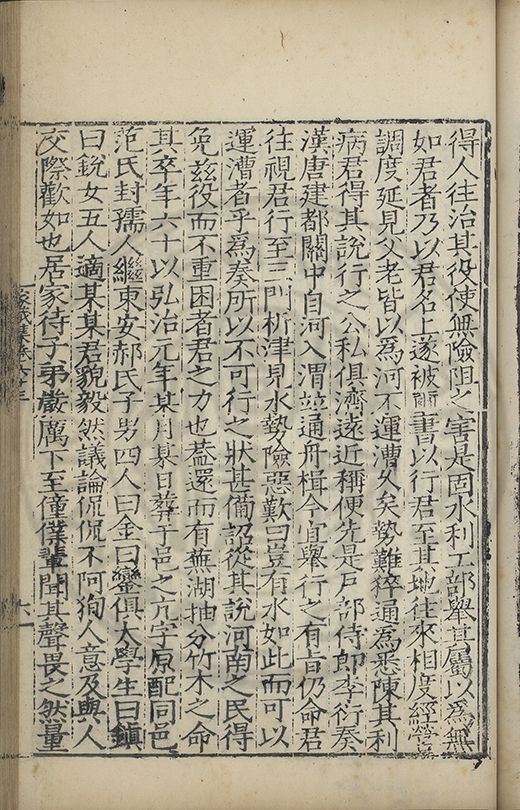 得人往治其役使無險阻之害是固水利工部舉其屬以為無
如君者乃以君名上遂被璽書以行君至其地往來相度經營
調度延見父老皆以為河不運漕久矣勢難猝通為悉陳其利
病君得其說行之公私俱濟遠近稱便先是戶部侍郎李衍奏
漢唐建都關中自河入渭並通舟楫今宜舉行之有旨仍命君
往視君行至三門析津見水勢險惡歎曰豈有水如此而可以
運漕者乎為奏所以不可行之狀甚備詔從其說河南之民得
免茲役而不重困者君之力也蓋還而有蕪湖抽分竹木之命
其卒年六十以弘治元年某月某日葬于邑之亢字原配同邑
范氏封孺人繼東安郝氏子男四人曰金曰鑾俱太學生曰鎮
曰銳女五人適某某君貌毅然議論侃侃不阿狥人意及與人
交際歡如也居家待子弟嚴厲下至僮僕輩聞其聲畏之然量
家藏集卷六十三
六